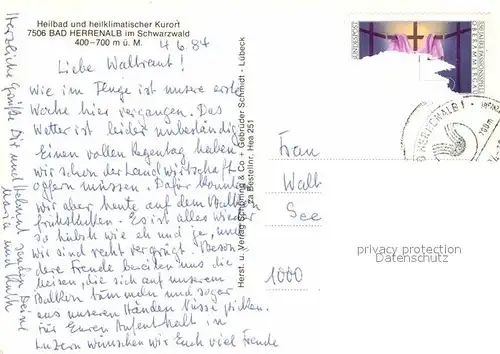 Heilbad und heilklimatischer Kurort
7506 BAD HERRENALB im Schwarzwald
400-700 m ü. M.
4.6.84
Liebe Waltraut!
Wie im Fluge ist unsere erste
Woche hier vergangen. Das
Wetter ist leider unbeständig
Einen vollen Regentag haben
wir schon der Landwirtschaft
opfern müssen. Dafür konnten
wir aber heute auf dem Balkon
frühstücken. Es ist alles wieder
so hübsch wie eh und je, und
wir sind recht vergnügt. Beson
dere Freude bereiten uns die
Meisen, die sich auf unserem
Balkon tummeln und sogar
aus unseren Händen Nüsse picken.
Für Euren Aufenthalt in
Luzern wünschen wir Euch viel Freude
Herzliche Grüße Dir und Helmut senden Deine
Maria und Ruth
Herst. u. Verlag Schöning & Co + Gebrüder Schmidt - Lübeck
Bestellnr. Hea 251
DEUTSCHE BUNDESPOST
350 JAHRE PASSIONSSPIELE
OBERAMMERGAU
BAD HERRENALB 1
Frau
Walt
See
1000
privacy protection
Datenschutz